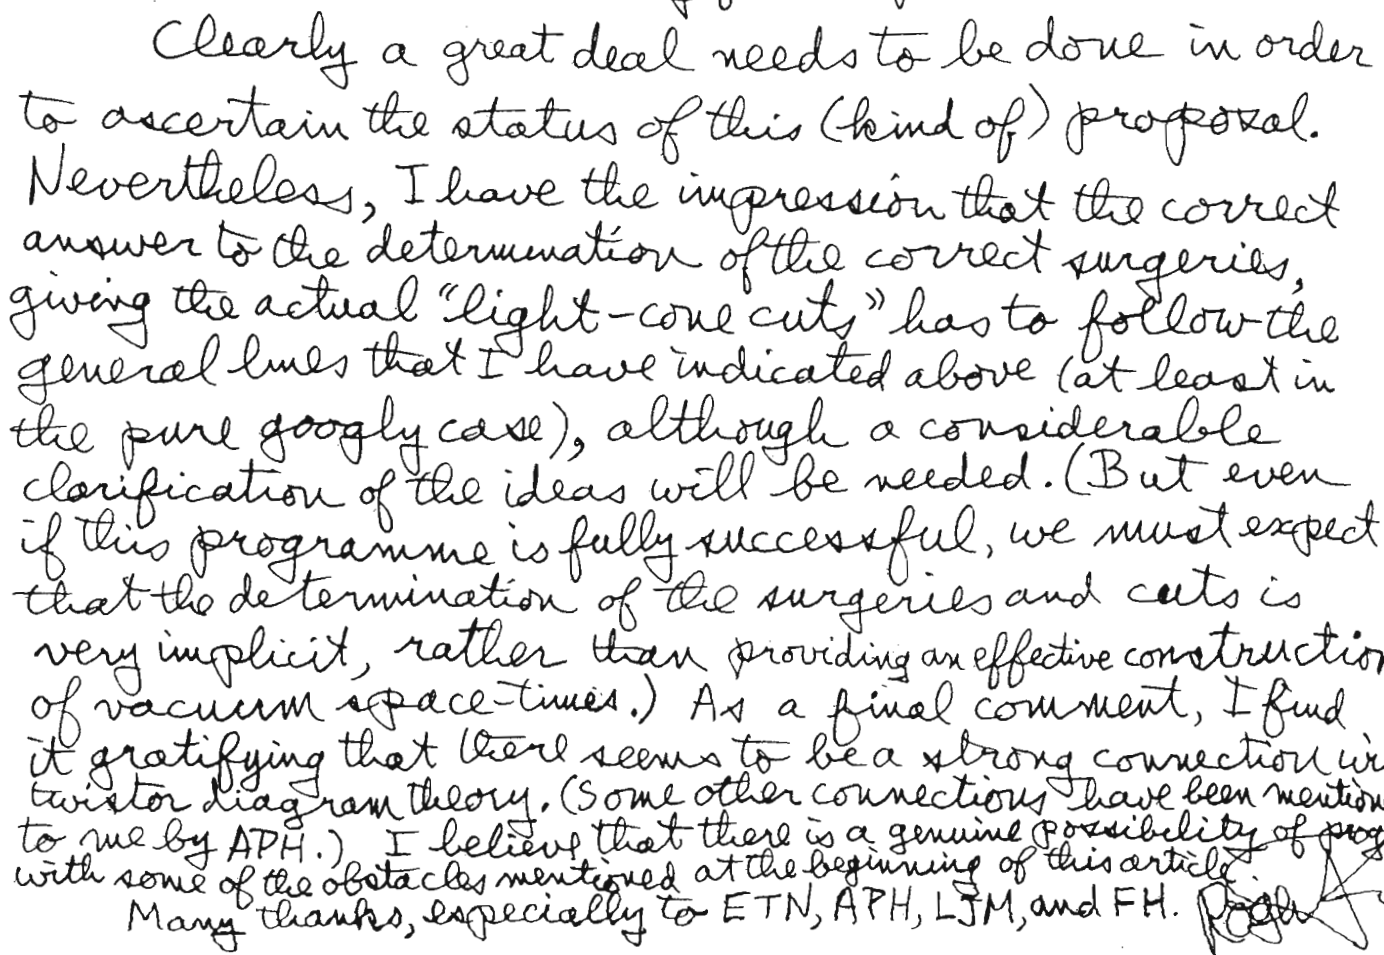 Clearly a great deal needs to be done in order
to ascertain the status of this (kind of) proposal.
Nevertheless, I have the impression that the correct
answer to the determination of the correct surgeries,
giving the actual "light-cone cuts" has to follow the
general lines that I have indicated above (at least in
the pure googly case), although a considerable
clarification of the ideas will be needed. (But even
if this programme is fully successful, we must expect
that the determination of the surgeries and cuts is
very implicit, rather than providing an effective construction
of vacuum space-times.) As a final comment, I find
it gratifying that there seems to be a strong connection
twistor diagram theory. (Some other connections have been mention
to me by APH.) I believe that there is a genuine possibility of prog
with some of the obstacles mentioned at the beginning of this article.
Many thanks, especially to ETN, APH, LJM, and FH. Roger